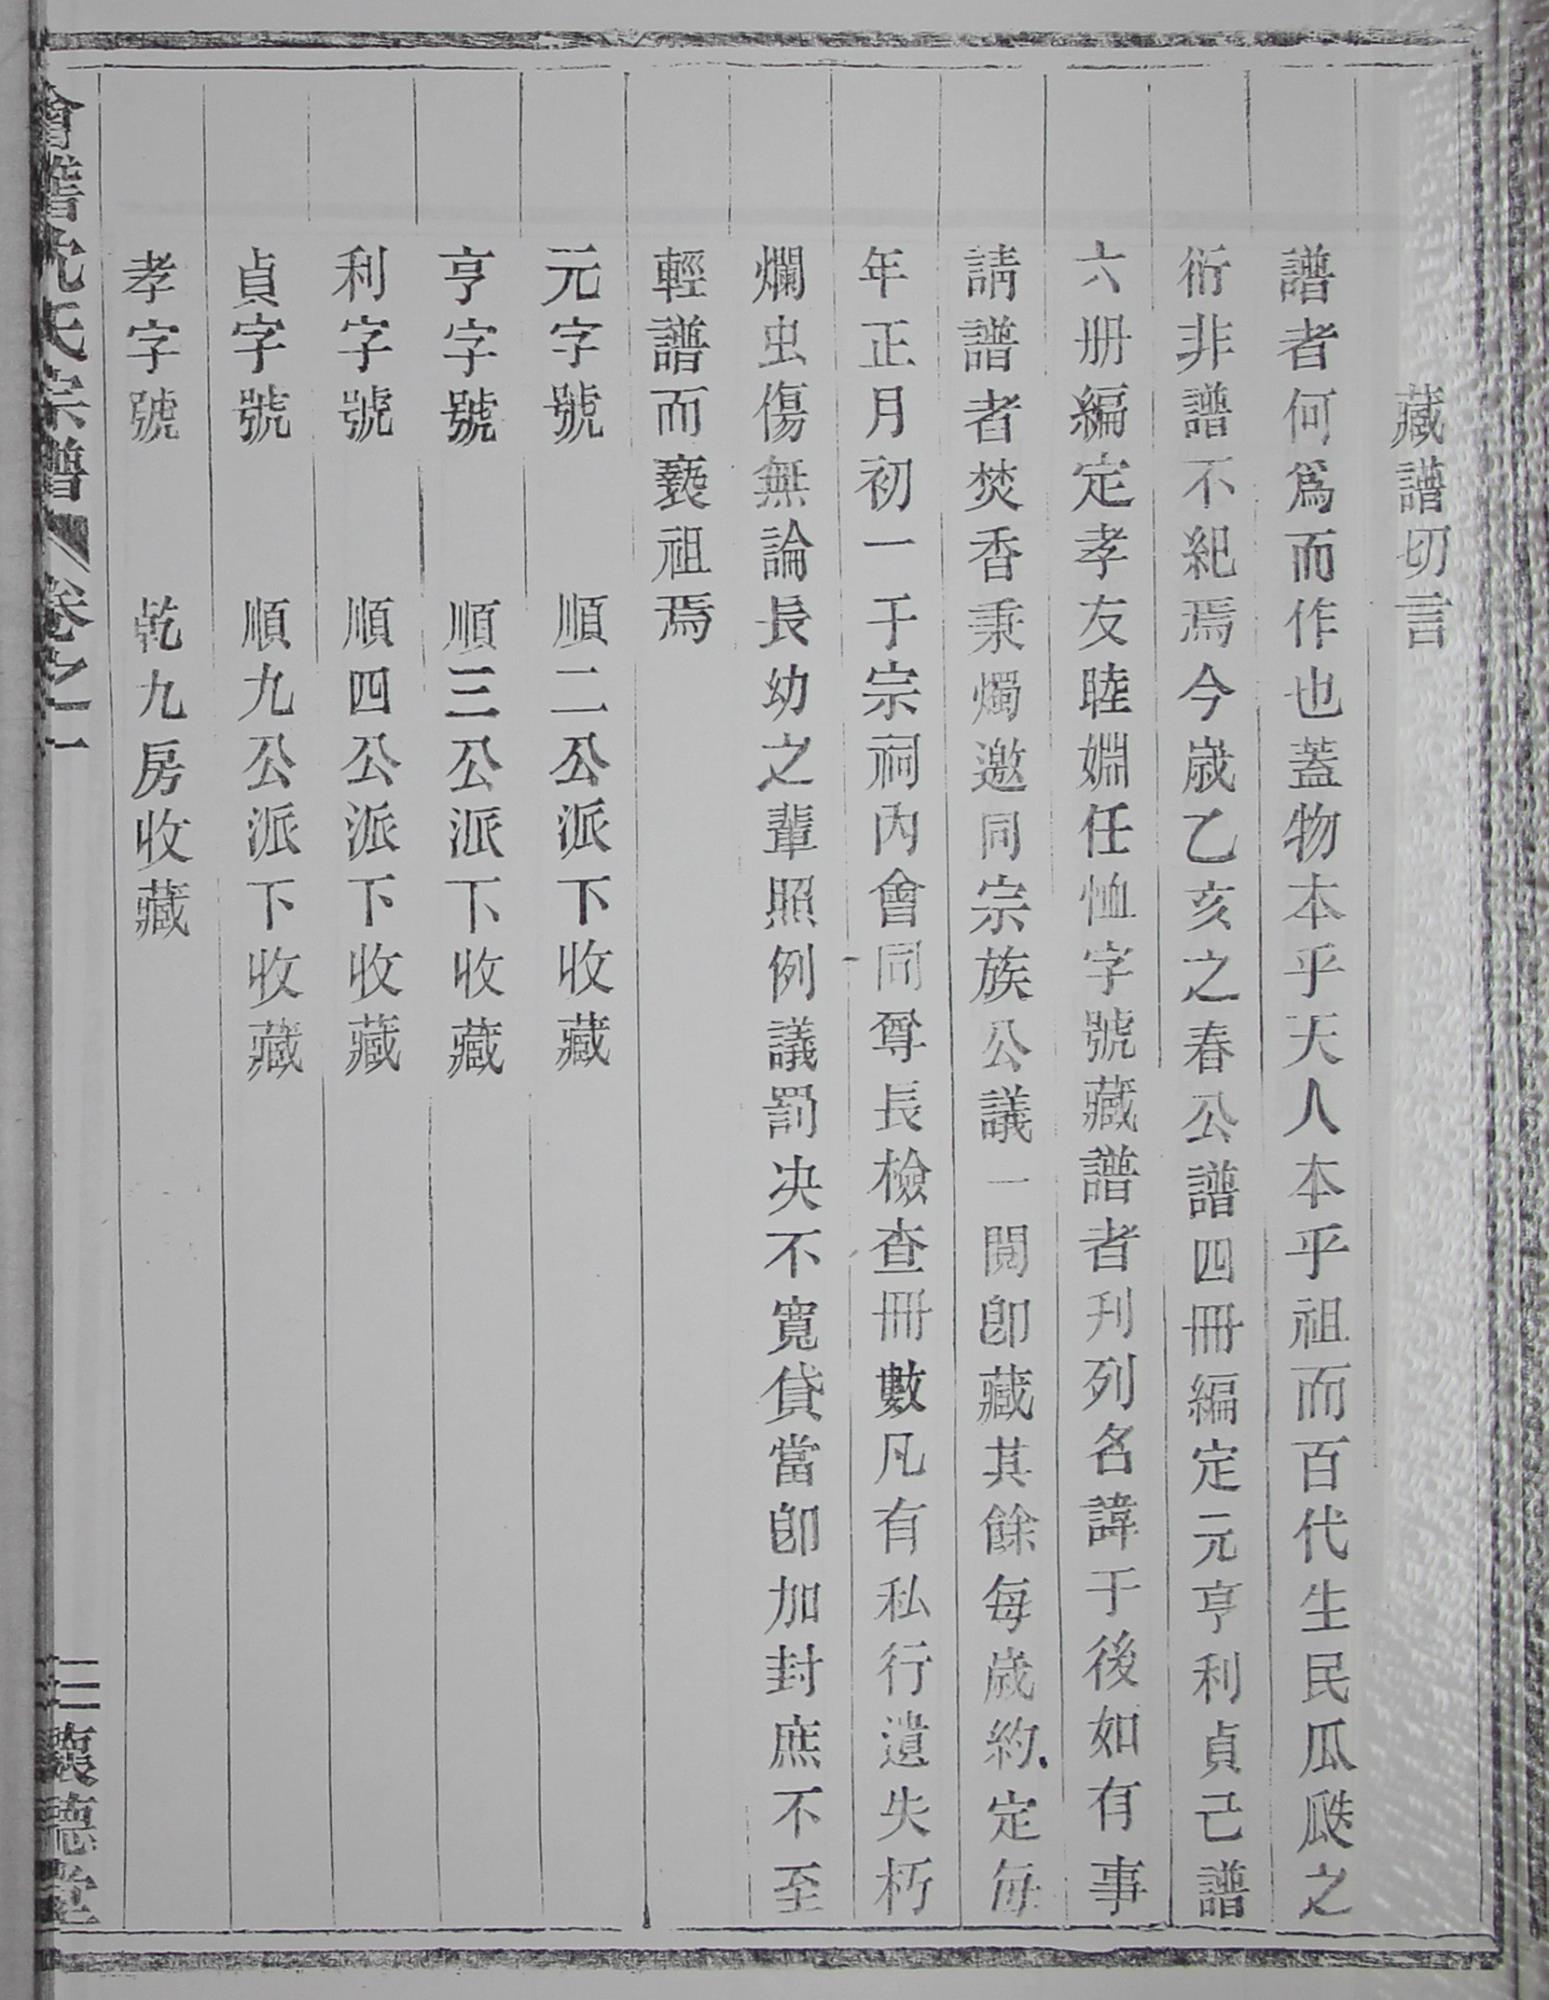 藏譜切言
譜者何爲而作也蓋物本乎天人本乎祖而百代生民瓜瓞之
衍非譜不紀焉今歲乙亥之春公譜四冊編定元亨利貞己譜
六册編定孝友睦婣任恤字號藏譜者刋列名諱于後如有事
請譜者焚香秉燭邀同宗族公議一閱卽藏其餘每歲約定每
年正月初一于宗祠內會同尊長檢查冊數凡有私行遺失朽
爛虫傷無論長幼之輩照例議罰决不寬貸當卽加封庶不至
輕譜而褻祖焉
元字號 順二公派下收藏
亨字號 順三公派下收藏
利字號 順四公派下收藏
貞字號 順九公派下收藏
孝字號 乾九房收藏
會稽沈氏宗譜 卷之一 三 懷德堂